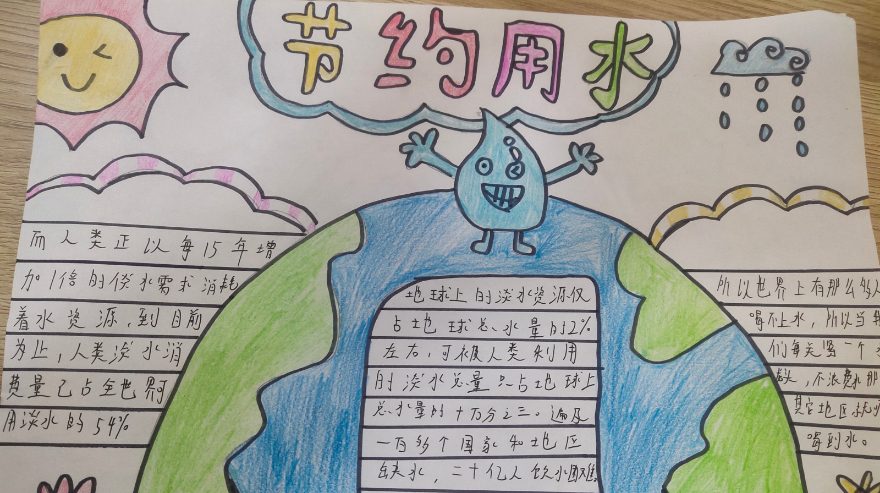 节约用水
而人类正以每15年增
加1倍的淡水需求消耗
着水资源，到目前
为止，人类淡水消
费量已占全世界可
用淡水的54%
地球上的淡水资源仅
占地球总水量的2%
左右，可被人类利用
的淡水总量只占地球上
总水量的十万分之三。遍及
一百多个国家和地区
缺水，二十亿人饮水困难
所以世界上有那么多人
喝不上水，所以当我
们每关紧一个水
龙头，不浪费水那
其它地区就
喝到水。